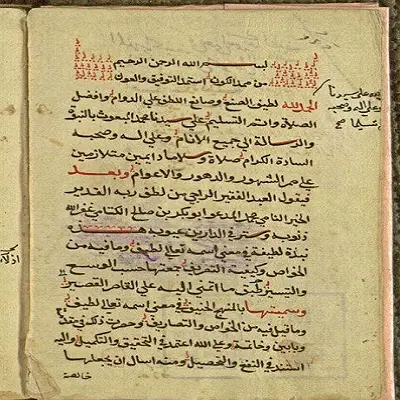 بسم الله الرحمن الرحيم
من ممد الكون استمد التوفيق والعون
الحمد لله لطيف الصنع وصانع اللطف على الدوام وافضل
الصلاة واتم التسليم على سيدنا محمد المبعوث بالنبوة
والرسالة الى جميع الأنام وعلى اله وصحبه
السادة الكرام صلاة وسلاما دايمين متلازمين
على ممر الشهور والدهور والاعوام وبعد
فيقول العبد الفقير الراجي من لطف ربه القدير
الخبير محمد المدعو ابو بكر بن صالح الكتامي غفر الله
ذنوبه وستر في الدارين عيوبه هذه
نبذة لطيفة في معنى اسمه تعالى لطيف وما فيه من
الخواص وكيفية التصريف جمعتها حسب الوسع
والتيسير طبق ما انتهى اليه علم القاصر القصير
وسميتها بالمنهج الحنيف في معنى اسمه تعالى لطيف
وما قيل فيه من الخواص والتصاريف وحصرت ذلك في
وبابين وخاتمة وعلى الله اعتمد في التحقيق والتكميل واليه
استند في النفع والتحصيل ومنه اسال ان يجعلها
خالصة